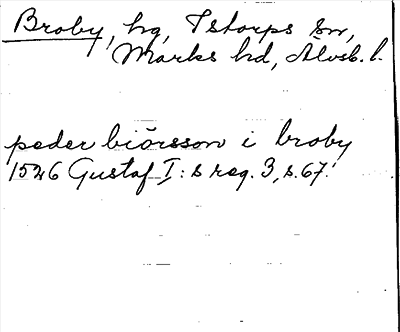 Broby, hg, Istorps sn,
Marks hd, Älvsb. l.
peder biörsson i broby
1526 Gustaf I:s reg. 3, s. 67.